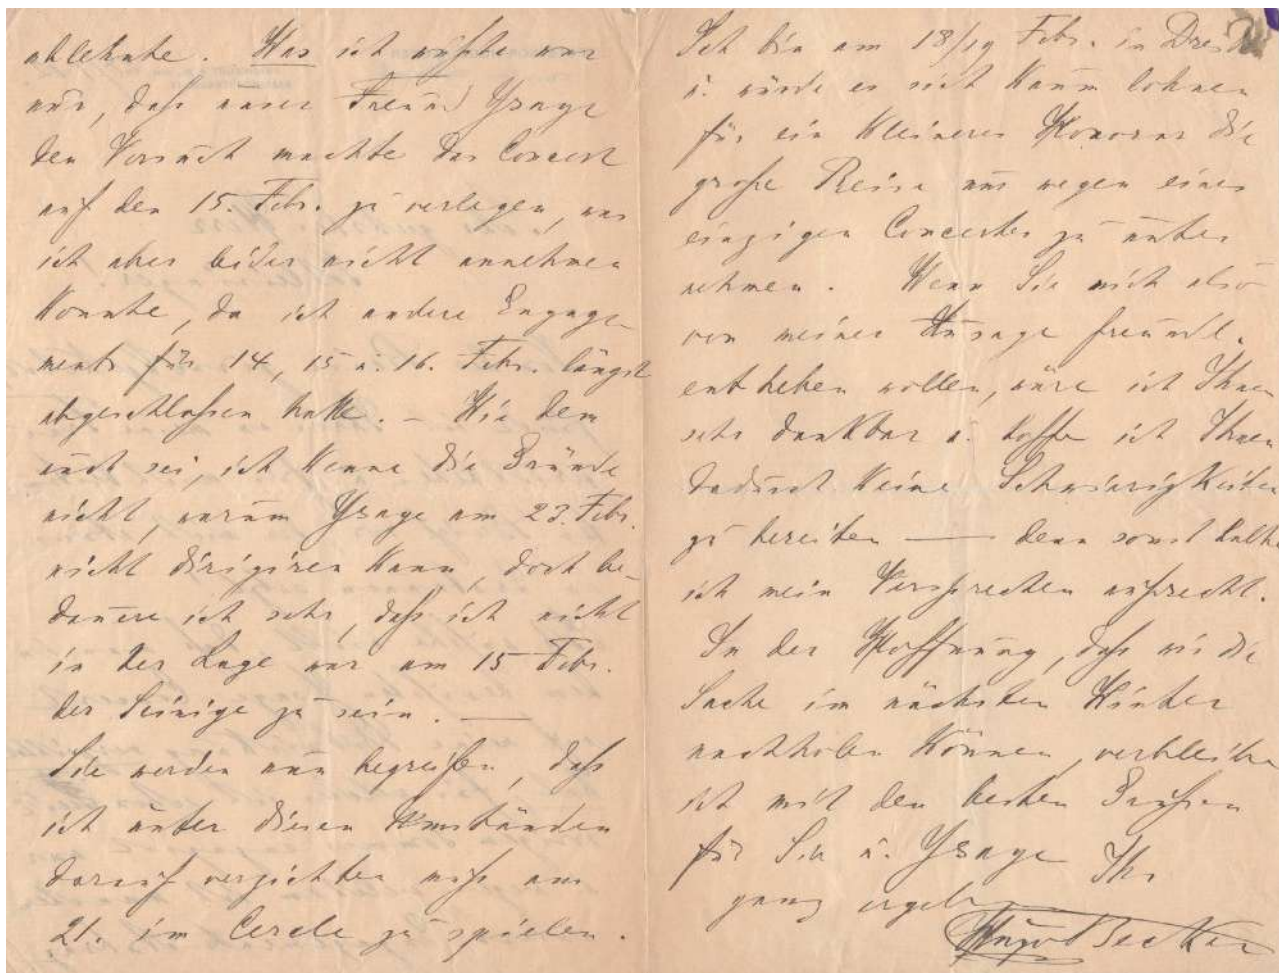 ablehnte. Was ich wußte war
nur, daß unser Freund Ysaye
den Versuch machte das Concert
auf den 15. Febr. zu verlegen, was
ich aber leider nicht annehmen
konnte, da ich andere Engage-
ments für 14, 15 u. 16. Febr. längst
abgeschlossen hatte. – Wie dem
auch sei, ich kenne die Gründe
nicht, warum Ysaye am 23. Febr.
nicht dirigiren kann, doch be-
dauere ich sehr, daß ich nicht
in der Lage war am 15 Febr.
der Seinige zu sein. —
Sie werden nun begreifen, daß
ich unter diesen Umständen
darauf verzichten muß am
21. im Cercle zu spielen.
Ich bin am 18/19 Febr. in Dresden
u. würde es sich kaum lohnen
für ein kleineres Honorar die
große Reise nur wegen eines
einzigen Concertes zu unter
nehmen. Wenn Sie mich also
von meiner Zusage freundl.
entheben wollen, wäre ich Ihnen
sehr dankbar u. hoffe ich Ihnen
dadurch keine Schwierigkeiten
zu bereiten — denn sonst halte
ich mein Versprechen aufrecht.
In der Hoffnung, daß wir die
Sache im nächsten Winter
nachholen können, verbleibe
ich mit den besten Grüßen
für Sie u. Ysaye Ihr
ganz ergeb.
Hugo Becker